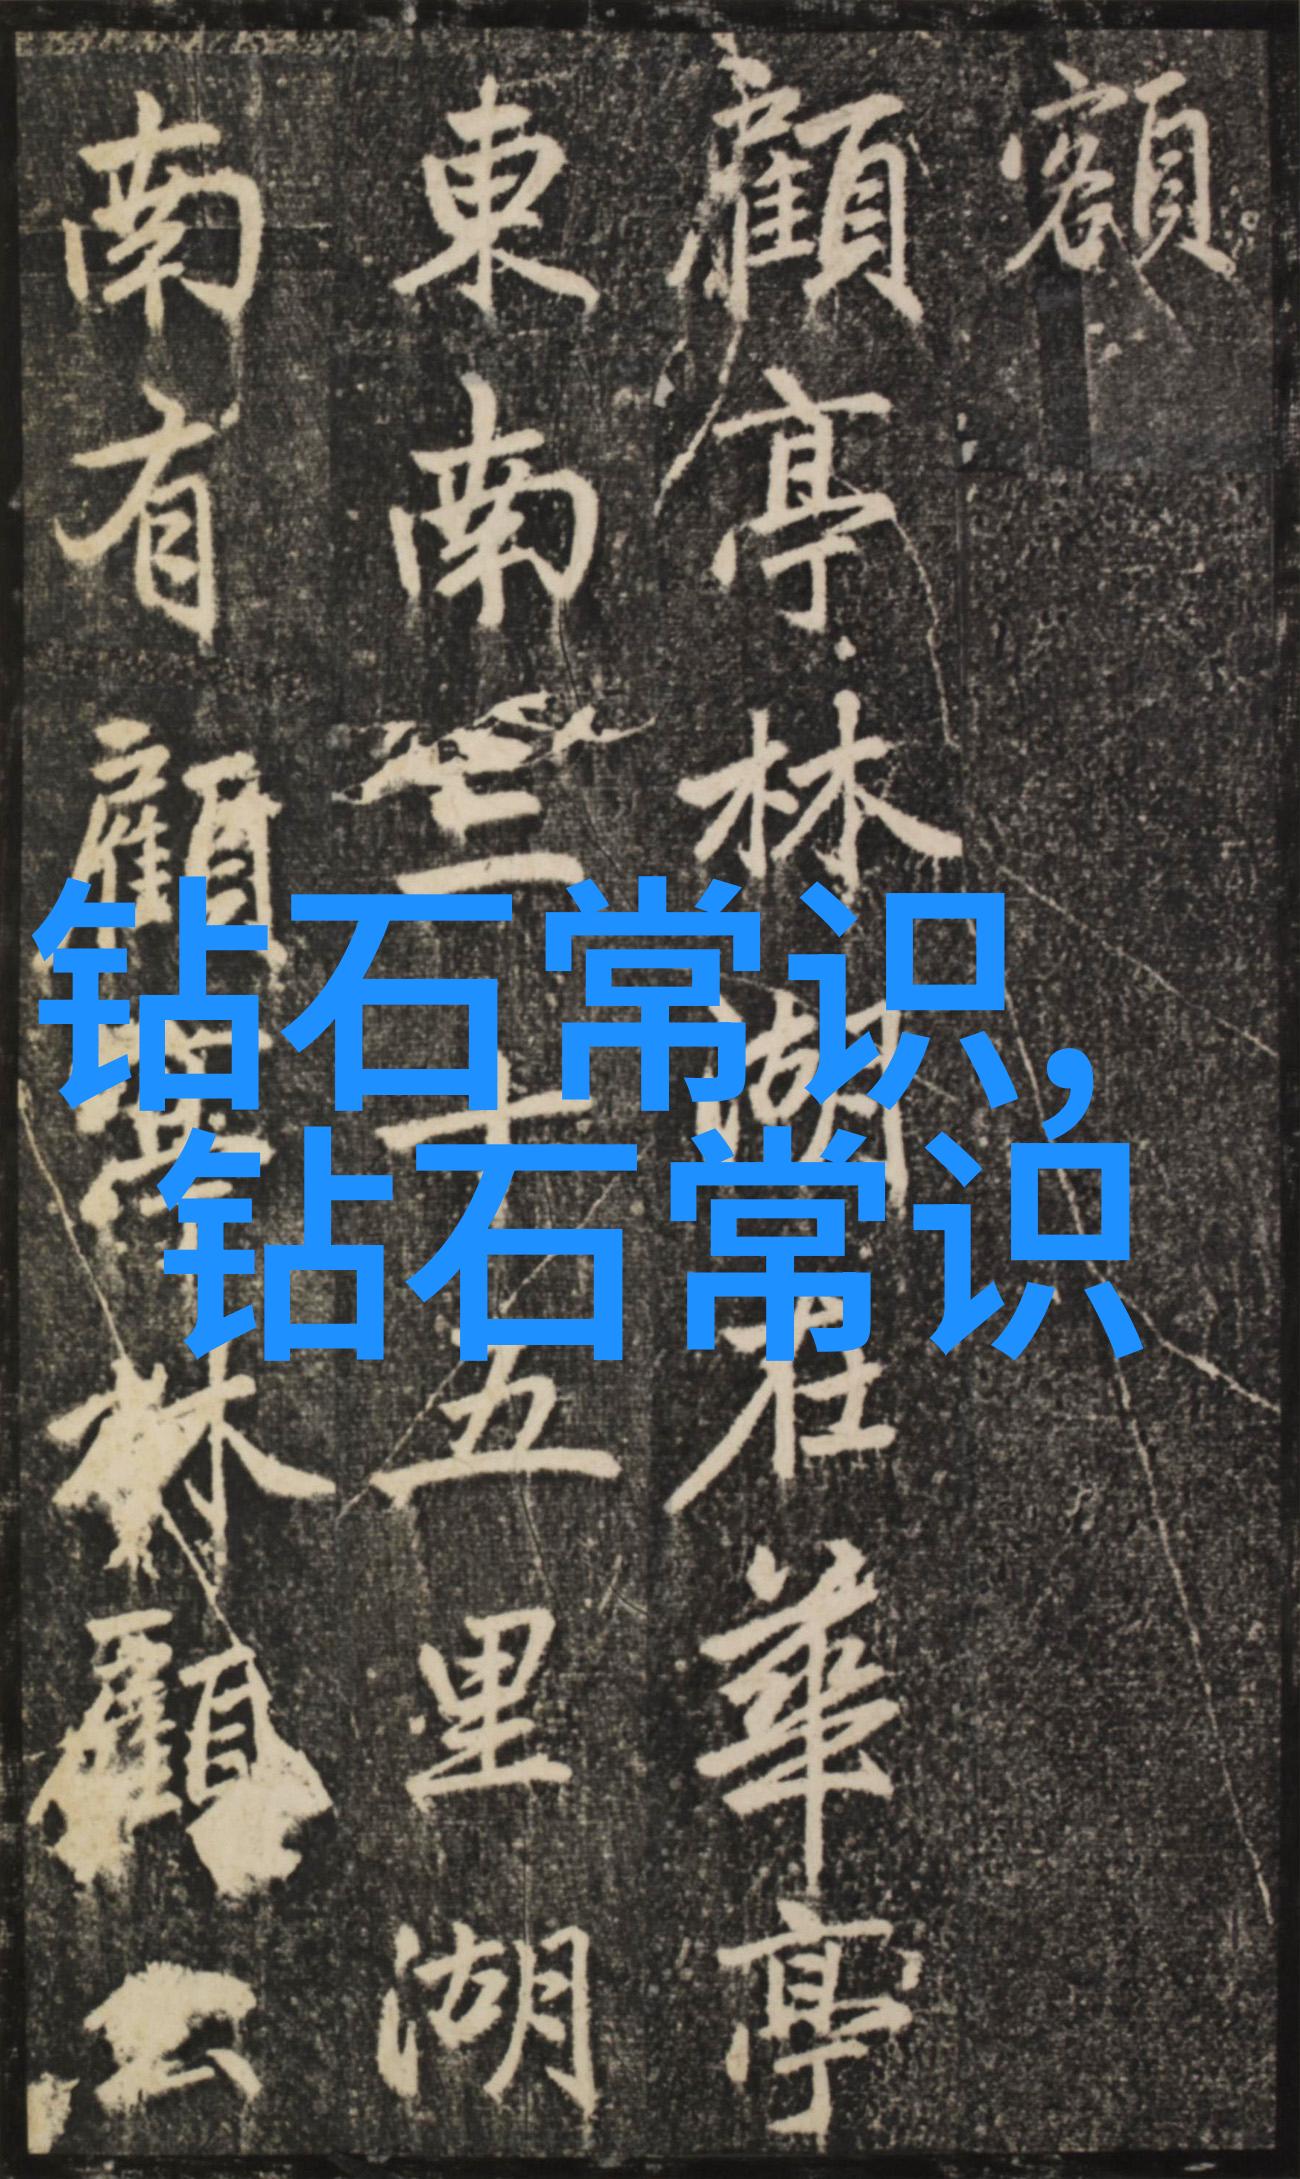 钻石常识,
钻石常识
額
顧亭林湖在華亭
東南三十五里湖
南有顧林顧公